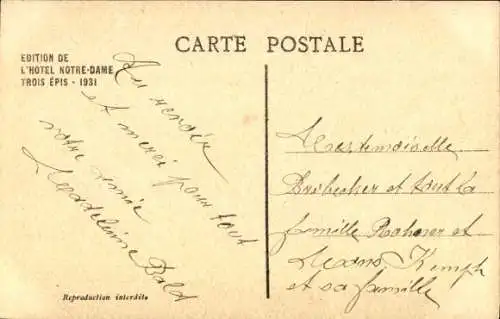 CARTE POSTALE
EDITION DE
L'HOTEL NOTRE-DAME
TROIS ÉPIS - 1931
Au revoir
et merci pour tout
votre amie
Madeleine Bald
Mesdemoiselle
et tout la
famille Rohmer et
Kempf
et sa famille
Reproduction interdite